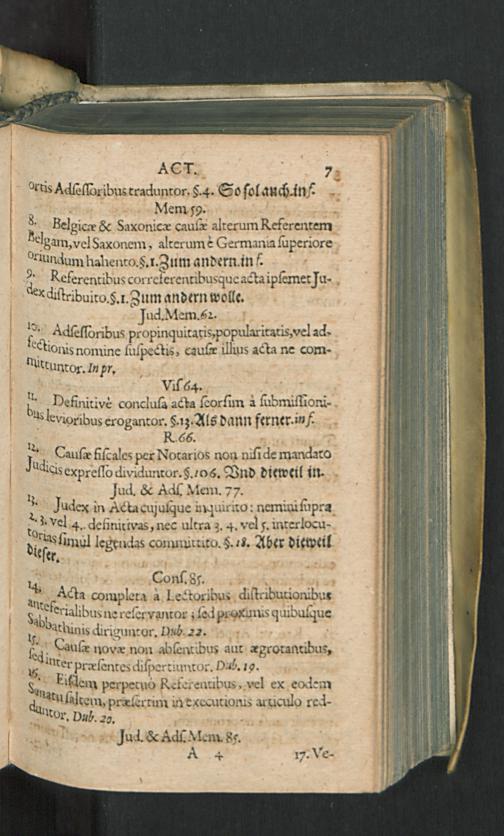 ACT. 7
ortis Adſeſſoribus traduntor. §.4. So ſol auch. in f.
Mem. 59.
8. Belgicæ & Saxonicæ cauſæ alterum Referentem
Belgam, vel Saxonem, alterum è Germania ſuperiore
oriundum habento. §.1. Zum andern. in f.
9. Referentibus correferentibusque acta ipſemet Ju-
dex diſtribuito. §.1. Zum andern wolle.
Jud. Mem. 62.
10. Adſeſſoribus propinquitatis, popularitatis, vel ad-
fectionis nomine ſuſpectis, cauſæ illius acta ne com-
mittuntor. In pr.
Viſ 64.
11. Definitivè concluſa acta ſeorſim à ſubmiſſioni-
bus levioribus erogantor. §.13. Als dann ferner. in f.
R. 66.
12. Cauſæ fiſcales per Notarios non niſi de mandato
Judicis expreſſo dividuntor. §.106. Vnd dieweil in.
Jud. & Adſ. Mem. 77.
13. Judex in Acta cujuſque inquirito: nemini ſupra
2. 3. vel 4. definitivas, nec ultra 3. 4. vel 5. interlocu-
torias ſimul legendas committito. §. 18. Aber dieweil
dieſer.
Conſ. 85.
14. Acta completa à Lectoribus diſtributionibus
anteferialibus ne reſervantor; ſed proximis quibuſque
Sabbathinis diriguntor. Dub. 22.
15. Cauſæ novæ non abſentibus aut ægrotantibus,
ſed inter præſentes diſpertiuntor. Dub. 19.
16. Eiſdem perpetuò Referentibus, vel ex eodem
Senatu ſaltem, præſertim in executionis articulo red-
duntor. Dub. 20.
Jud. & Adſ. Mem. 85.
A 4 17. Ve-